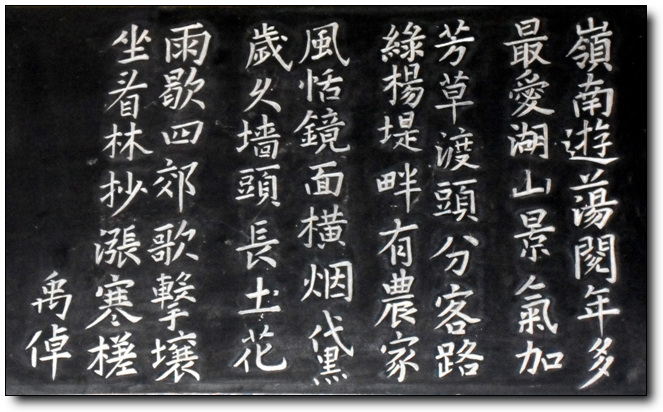 嶺南遊蕩閱年多
最愛湖山景氣加
芳草渡頭分客路
綠楊堤畔有農家
風恬鏡面橫烟黛
歲久墻頭長土花
雨歇四郊歌擊壤
坐看林抄漲寒槎
禹倬